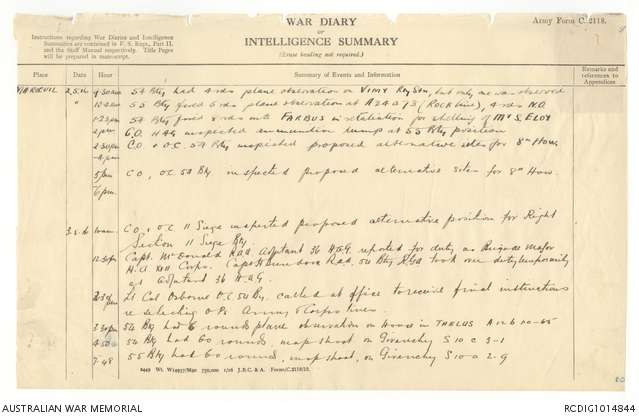 WAR DIARY
or
INTELLIGENCE SUMMARY
(Erase heading not required.)
Army Form C. 2118.
Instructions regarding War Diaries and Intelligence
Summaries are contained in F. S. Regs., Part II.
and the Staff Manual respectively. Title Pages
will be prepared in manuscript.
Place Date Hour Summary of Events and Information Remarks and references to Appendices
54 Bty had 4 rds plane observation on VIMY Ry Stn, but only one was observed
55 Bty fired 6 rds plane observation at A 24 d 73 (ROCKLINE), 4 rds N.O.
54 Bty fired 8 rds into FARBUS in retaliation for shelling of Mt S. ELOY
2 pm C.O. HAG inspected ammunition dump at 55 Bty position
2.30pm C.O. & O.C. 54 Bty inspected proposed alternative sites for 8" How.
-4pm
5pm CO, OC 54 Bty inspected proposed alternative sites for 8" How.
6pm
CO, OC 11 Siege inspected proposed alternative position for Right
Section 11 Siege Bty.
12.30pm Capt. McDonald RGA Adjutant 36 HAG reported for duty as Brigade Major
H.A. Corps. Capt 54 Bty RGA took over duty temporarily
as Adjutant 36 HAG.
Lt. Col Osborne O.C. 54 Bty. called at office to receive final instructions
re selecting O.Ps Army & Corps lines.
3.30pm 54 Bty had 6 rounds plane observation on House in THELUS
54 Bty had 60 rounds, map shoot on Givenchy S 10 c 3-1
7.48 55 Bty had 60 rounds, map shoot, on Givenchy S 10 a 2-9
2449 Wt. W14957/M90 750,000 1/16 J.B.C. & A. Forms/C.2118/12.
AUSTRALIAN WAR MEMORIAL
RCDIG1014844